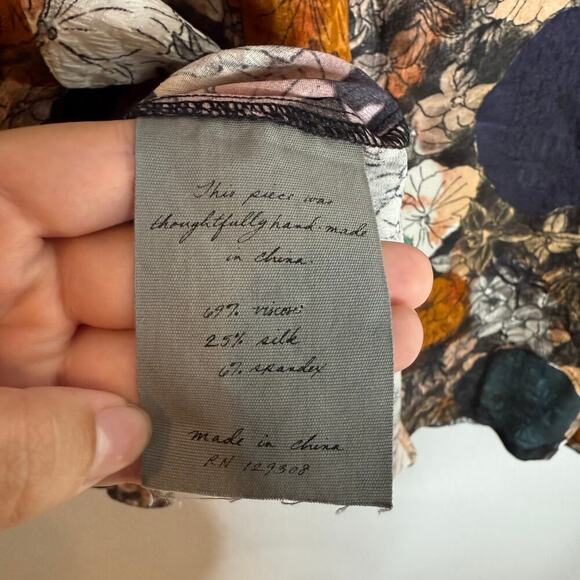 This piece was
thoughtfully hand-made
in china.
69% viscose
25% silk
6% spandex
made in china
RN 129308